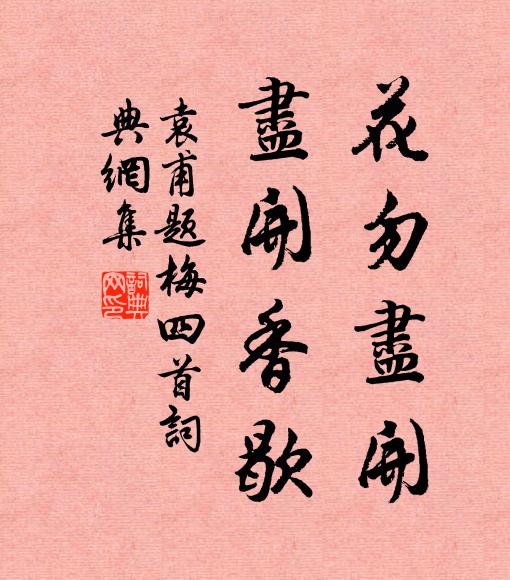 花勿盡開
盡開香歇
袁甫題梅四首詞
典網集
詞典
网印